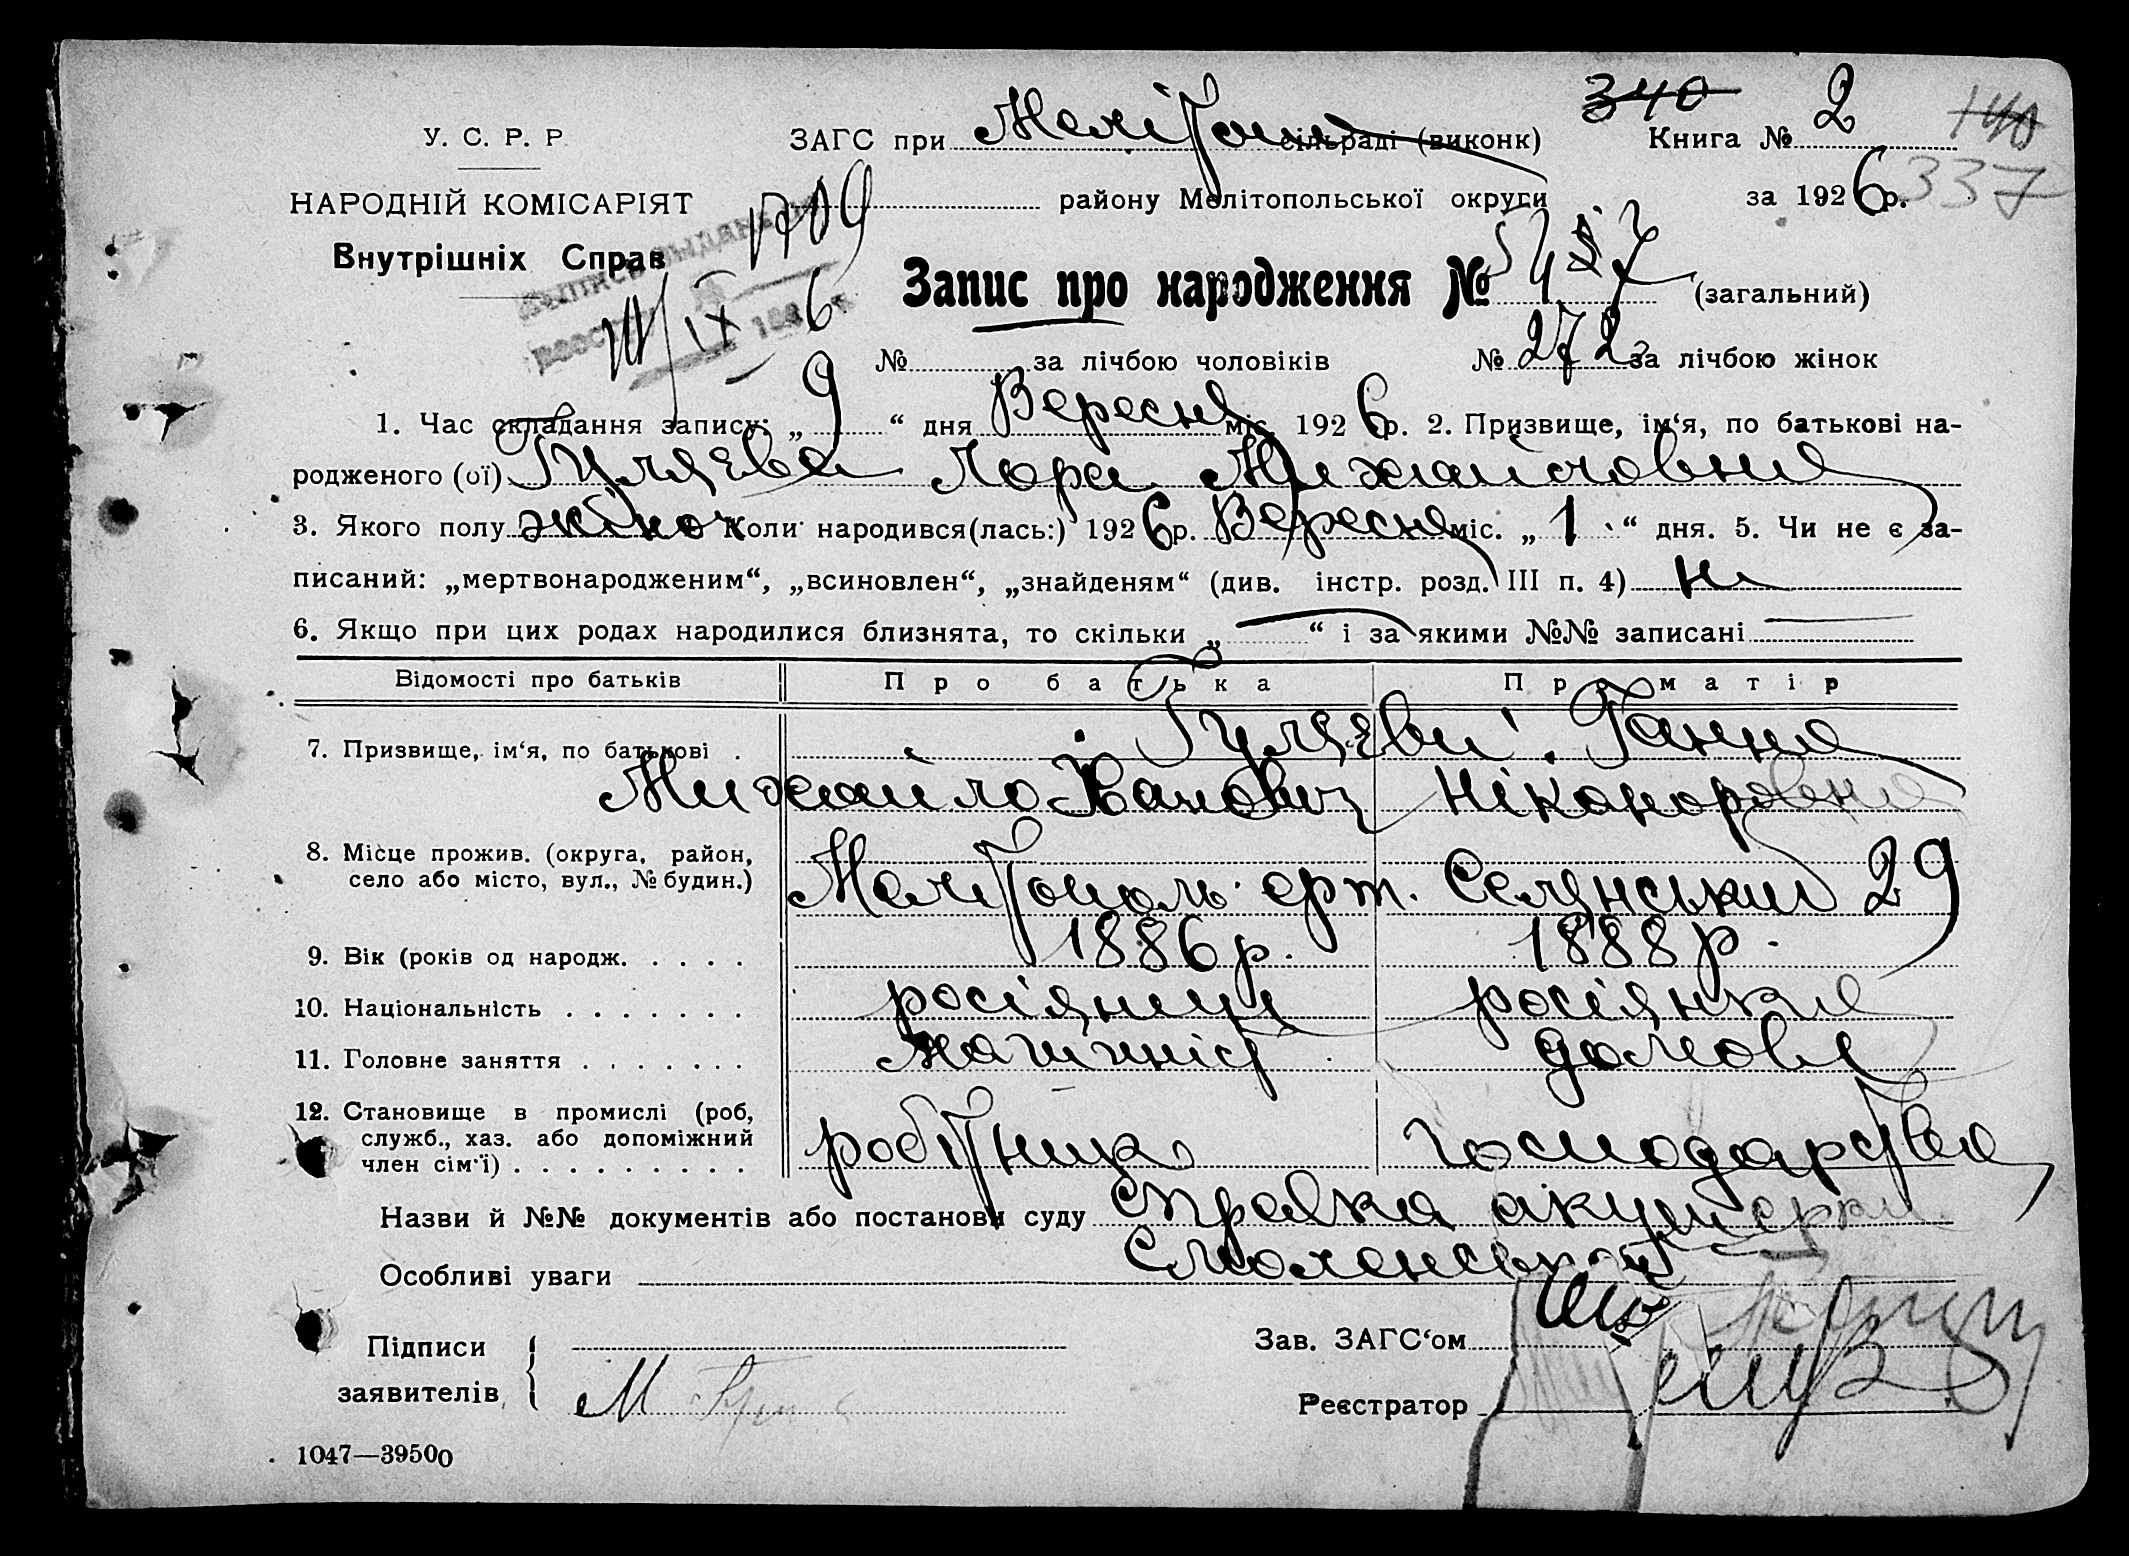 340 140
У. С. Р. Р. ЗАГС при Мелітоп сільраді (виконк) Книга № 2
НАРОДНІЙ КОМІСАРІЯТ района Мелітопольської округи за 1926 р. 337
Внутрішніх Справ 1709
Запис про народження № 5457 (загальний)
IX 1926
№ за лічбою чоловіків № 272 за лічбою жінок
1. Час складання запису: „ 9 “ дня Вересня міс. 1926 р. 2. Призвище, ім‘я, по батькові на-
родженого (ої) Гуляєва Лора Михайловна
3. Якого полу жіноч Коли народився(лась:) 1926 р. Вересня міс. „ 1 “ дня. 5. Чи не є за-
писаний: „мертвонародженим“, „всиновлен“, „знайденям“ (див. інстр. розд. III п. 4) ні
6. Якщо при цих родах народилися близнята, то скільки „ “ і за якими №№ записані
Відомості про батьків Про батька Про матір
7. Призвище, ім‘я, по батькові Гуляєви Ганна
Михайло Іванович Ніконоровна
8. Місце прожив. (округа, район,
село або місто, вул., № будин.) Мелітополь Селянський 29
9. Вік (років од народж. 1886 р. 1888 р.
10. Національність росіянин росіянка
11. Головне заняття машиніст домове
12. Становище в промислі (роб,
служб., хаз. або допоміжний
член сім‘ї) робітник господарство
Назви й №№ документів або постанови суду справка акушерки
Особливі уваги Смоленської
Підписи Зав. ЗАГС‘ом
заявителів М Реєстратор
1047—39500